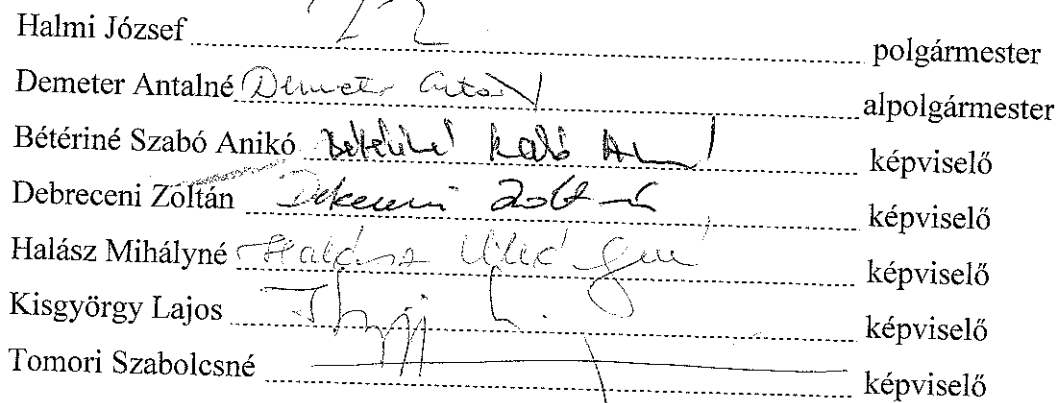 Halmi József polgármester
Demeter Antalné Demeter Antalné alpolgármester
Bétériné Szabó Anikó képviselő
Debreceni Zoltán Debreceni Zoltán képviselő
Halász Mihályné Halász Mihályné képviselő
Kisgyörgy Lajos képviselő
Tomori Szabolcsné képviselő